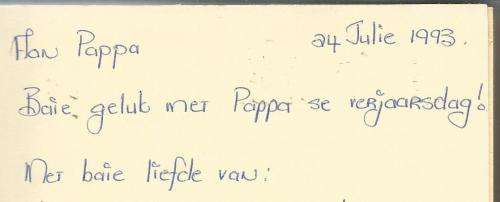 Aan Pappa 24 Julie 1993.
Baie geluk met Pappa se verjaarsdag!
Met baie liefde van: